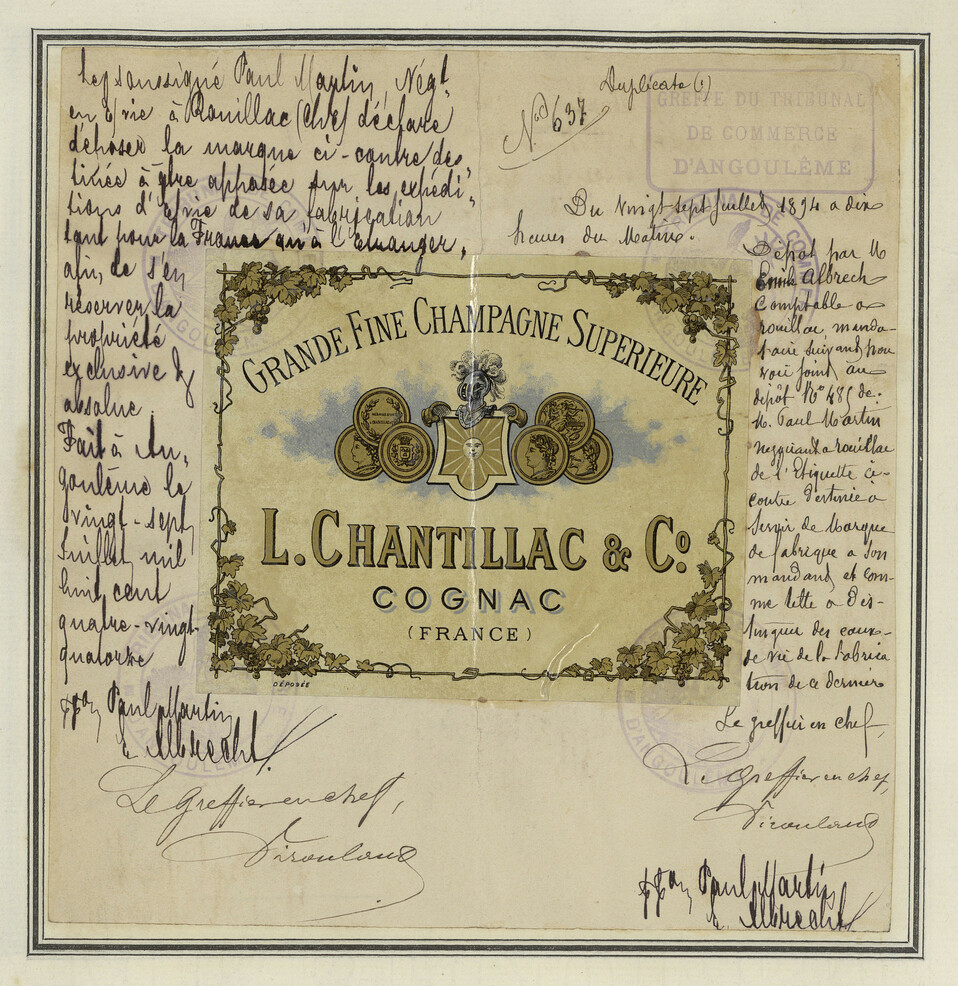 Le soussigné Paul Martin, Négt
en E/vie à Rouillac (Chte) déclare
déposer la marque ci-contre des-
tinée à être apposée sur les expédi-
tions d'E/vie de sa fabrication
tant pour la France qu'à l'Etranger,
afin de s'en
réserver la
propriété
exclusive &
absolue.
Fait à An-
goulême le
vingt-sept
Juillet mil
huit cent
quatre-vingt
quatorze
ppon Paul Martin
E. Albrecht
Le Greffier en chef,
Duplicata (1)
No 637
GREFFE DU TRIBUNAL
DE COMMERCE
D'ANGOULÊME
Du Vingt sept Juillet 1894 a dix
heures du Matin.
Dépot par M
Emile Albrech
Comptable a
rouillac manda-
taire suivant pou
voir joint au
dépôt No 485 de
M. Paul Martin
négociant a rouillac
de l'Etiquette ci-
contre destinée a
servir de Marque
de fabrique a son
mandant et com-
me telle a dis-
tinguer des eaux-
de vie de la fabrica
tion de ce dernier
Le greffier en chef,
Le Greffier en chef,
ppon Paul Martin
E. Albrecht
GRANDE FINE CHAMPAGNE SUPERIEURE
L. CHANTILLAC & Co.
COGNAC
(FRANCE)
DÉPOSÉE